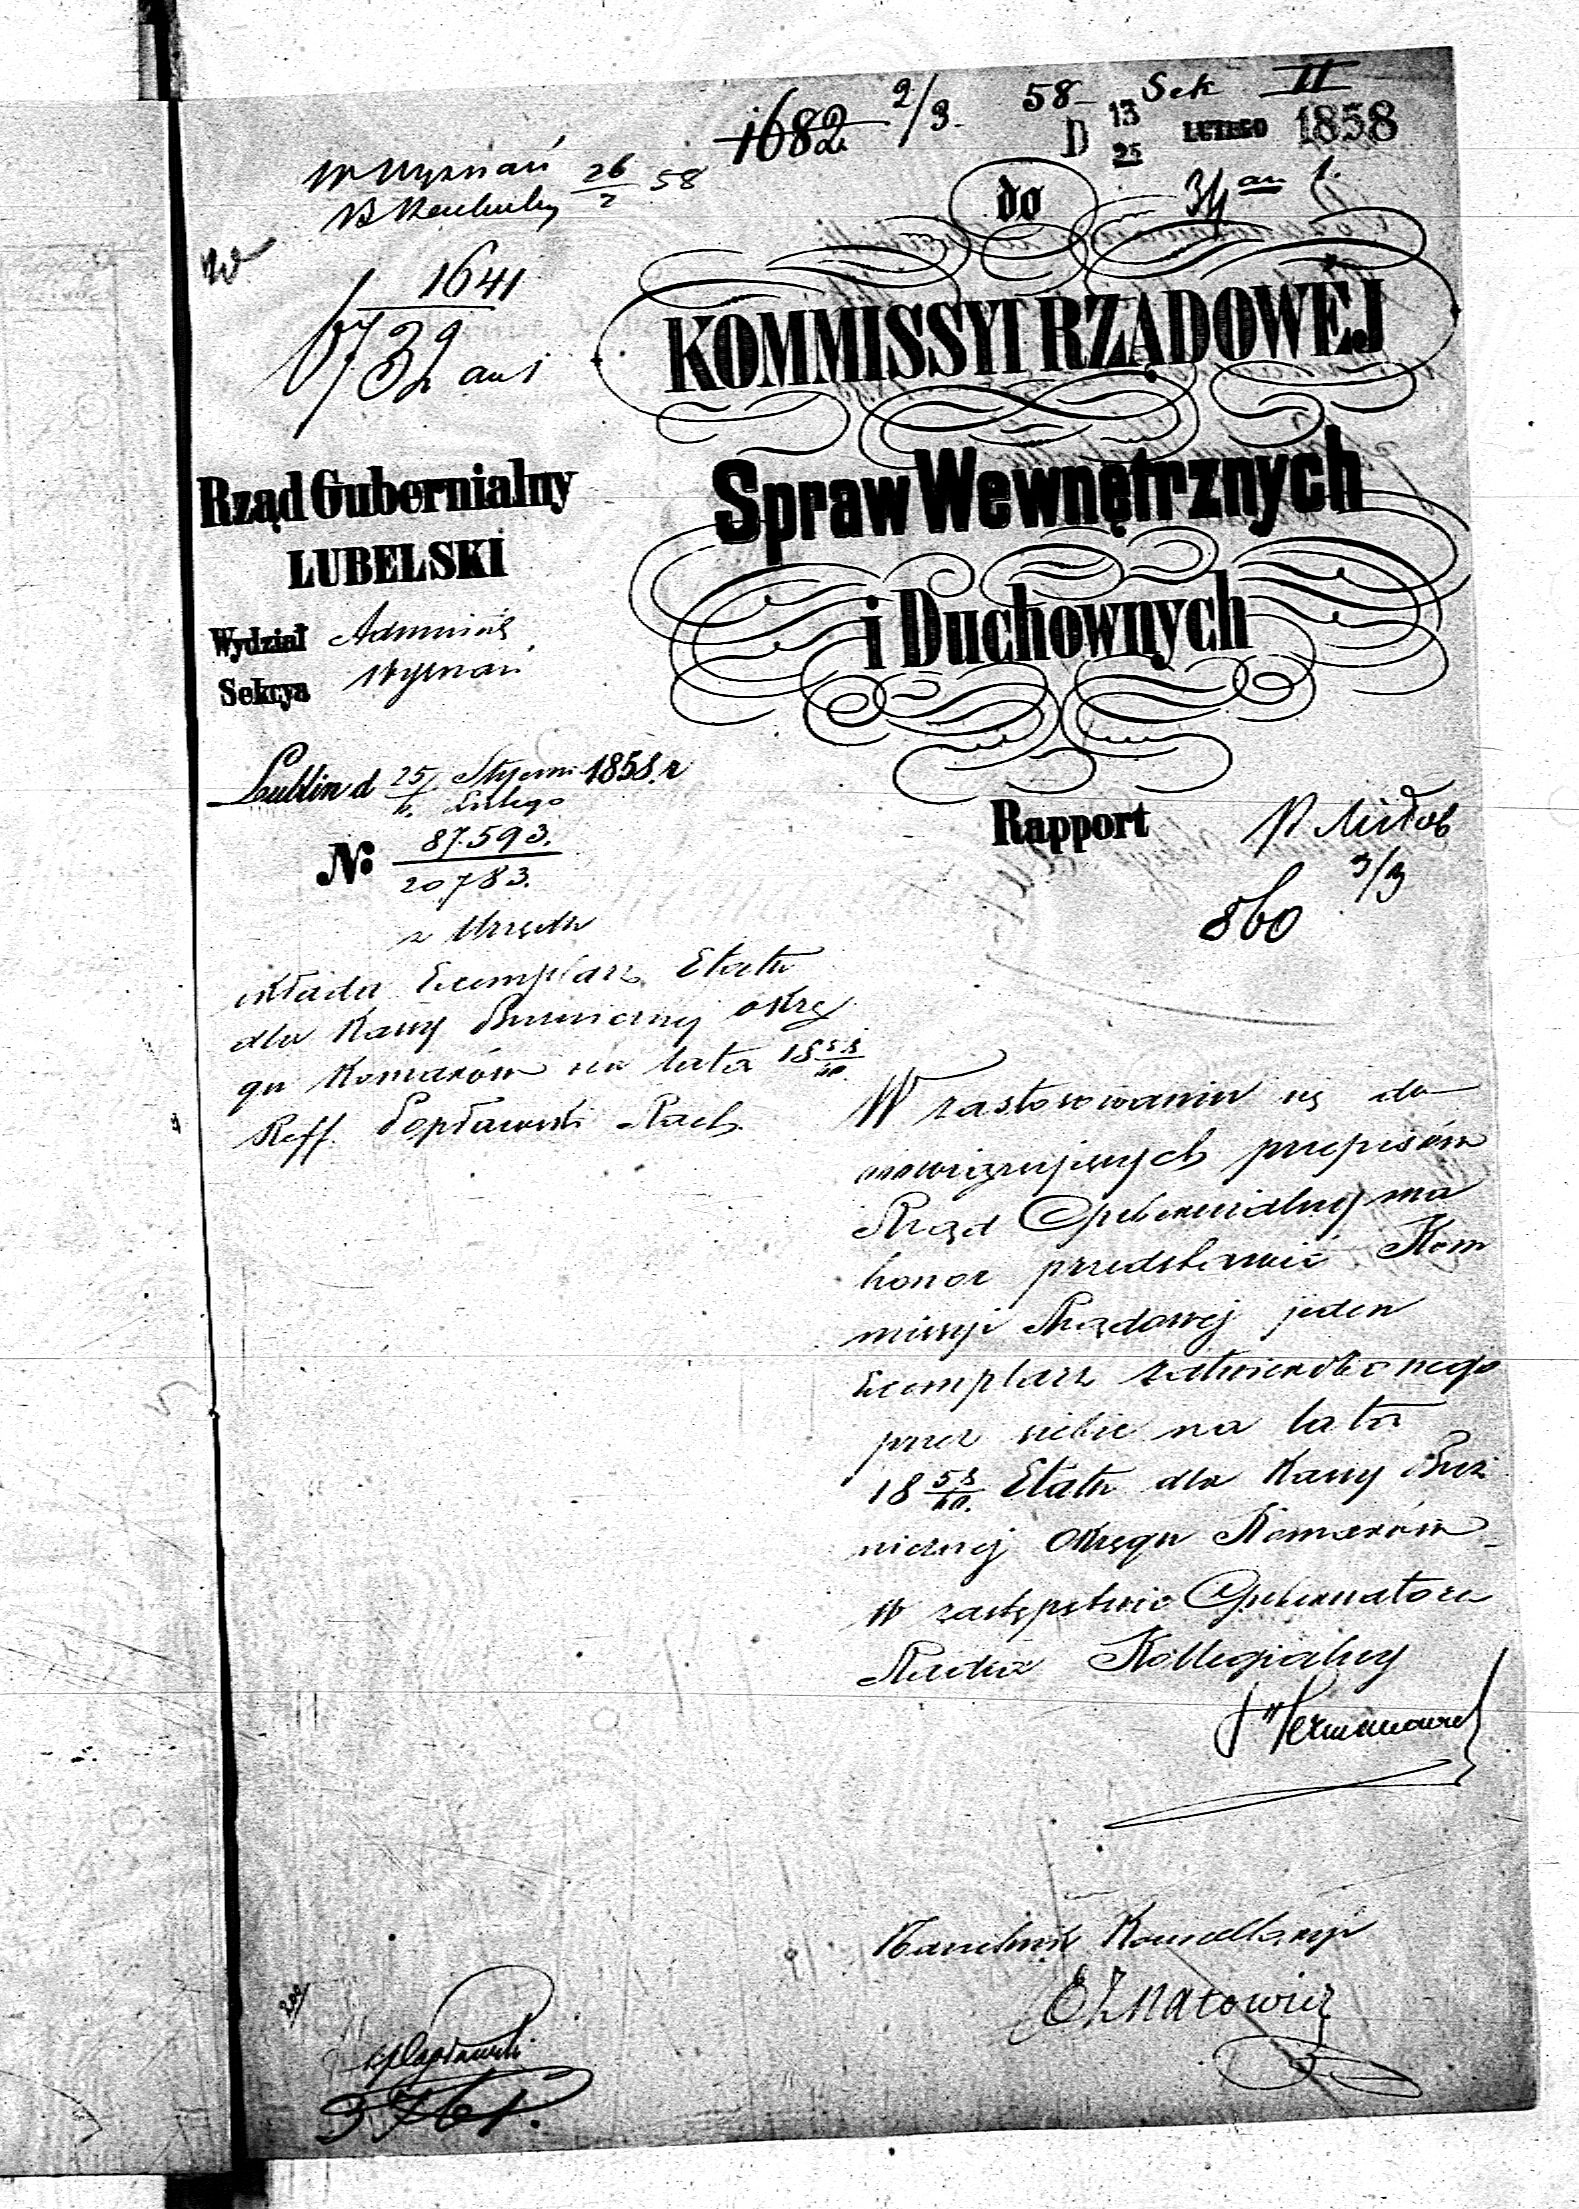 1682 2/3 58 Sek II
D 13/25 LUTEGO 1858
W Wyznań 26/2 58
34 an 1.
do
1641
6732 an 1
KOMMISSYI RZĄDOWÉJ
Spraw Wewnętrznych
i Duchownych
Rząd Gubernialny
LUBELSKI
Wydział Adminis
Sekcya Wyznań
Lublin d 25/6 Styczni Lutego 1858 r
Rapport
3/3
860
N: 87.593/20783.
z Urzędu
składa Exemplarz Etatu
dla Kassy Bużnicznej okrę
gu Komarów na lata 18 58/60
Reff. Popławski Rach.
W zastosowaniu się do
obowiązujących przepisów
Rząd Gubernialny ma
honor przedstawić Kom
missyi Rządowej jeden
Exemplarz zatwierdzonego
przez siebie na lata
18 58/60. Etatu dla Kassy Buż
nicznej Okręgu Komarów
W zastępstwie Gubernatora
Radca Kollegialny
Naczelnik Kancellaryi
Popławski